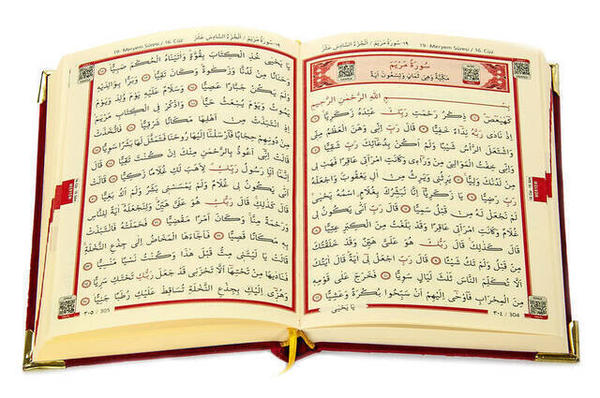 ١٩-سُورَةُ مَرْيَمَ / اَلْجُزْءُ السَّادِسُ عَشَرَ 19. Meryem Sûresi / 16. Cüz
سُورَةُ مَرْيَمَ
مَكِّيَّةٌ وَهِيَ ثَمَانٍ وَتِسْعُونَ اٰيَةً
بِسْمِ اللّٰهِ الرَّحْمٰنِ الرَّحِيمِ
كٓهٰيٰعٓصٓ ۝ ذِكْرُ رَحْمَتِ رَبِّكَ عَبْدَهُ زَكَرِيَّا ۝
اِذْ نَادٰى رَبَّهُ نِدَٓاءً خَفِيًّا ۝ قَالَ رَبِّ اِنّ۪ي وَهَنَ الْعَظْمُ مِنّ۪ي
وَاشْتَعَلَ الرَّأْسُ شَيْبًا وَلَمْ اَكُنْ بِدُعَٓائِكَ رَبِّ شَقِيًّا ۝
وَاِنّ۪ي خِفْتُ الْمَوَالِيَ مِنْ وَرَٓاء۪ي وَكَانَتِ امْرَاَت۪ي عَاقِرًا فَهَبْ ل۪ي
مِنْ لَدُنْكَ وَلِيًّا ۝ يَرِثُن۪ي وَيَرِثُ مِنْ اٰلِ يَعْقُوبَ وَاجْعَلْهُ
رَبِّ رَضِيًّا ۝ يَا زَكَرِيَّٓا اِنَّا نُبَشِّرُكَ بِغُلَامٍۨ اسْمُهُ يَحْيٰى
لَمْ نَجْعَلْ لَهُ مِنْ قَبْلُ سَمِيًّا ۝ قَالَ رَبِّ اَنّٰى يَكُونُ ل۪ي
غُلَامٌ وَكَانَتِ امْرَاَت۪ي عَاقِرًا وَقَدْ بَلَغْتُ مِنَ الْكِبَرِ عِتِيًّا ۝
قَالَ كَذٰلِكَ قَالَ رَبُّكَ هُوَ عَلَيَّ هَيِّنٌ وَقَدْ خَلَقْتُكَ
مِنْ قَبْلُ وَلَمْ تَكُ شَيْـًٔا ۝ قَالَ رَبِّ اجْعَلْ ل۪ٓي اٰيَةً قَالَ اٰيَتُكَ
اَلَّا تُكَلِّمَ النَّاسَ ثَلٰثَ لَيَالٍ سَوِيًّا ۝ فَخَرَجَ عَلٰى قَوْمِه۪
مِنَ الْمِحْرَابِ فَاَوْحٰٓى اِلَيْهِمْ اَنْ سَبِّحُوا بُكْرَةً وَعَشِيًّا ۝
يَا يَحْيٰى
٣٠٤ / 304
19. Meryem Sûresi / 16. Cüz ١٩-سُورَةُ مَرْيَمَ / اَلْجُزْءُ السَّادِسُ عَشَرَ
يَا يَحْيٰى خُذِ الْكِتَابَ بِقُوَّةٍ وَاٰتَيْنَاهُ الْحُكْمَ صَبِيًّا ۝
وَحَنَانًا مِنْ لَدُنَّا وَزَكٰوةً وَكَانَ تَقِيًّا ۝ وَبَرًّا بِوَالِدَيْهِ
وَلَمْ يَكُنْ جَبَّارًا عَصِيًّا ۝ وَسَلَامٌ عَلَيْهِ يَوْمَ وُلِدَ وَيَوْمَ
يَمُوتُ وَيَوْمَ يُبْعَثُ حَيًّا ۝ وَاذْكُرْ فِي الْكِتَابِ مَرْيَمَ
اِذِ انْتَبَذَتْ مِنْ اَهْلِهَا مَكَانًا شَرْقِيًّا ۝ فَاتَّخَذَتْ
مِنْ دُونِهِمْ حِجَابًا فَاَرْسَلْنَٓا اِلَيْهَا رُوحَنَا فَتَمَثَّلَ لَهَا بَشَرًا سَوِيًّا ۝
قَالَتْ اِنّ۪ٓي اَعُوذُ بِالرَّحْمٰنِ مِنْكَ اِنْ كُنْتَ تَقِيًّا ۝ قَالَ
اِنَّمَٓا اَنَا رَسُولُ رَبِّكِ لِاَهَبَ لَكِ غُلَامًا زَكِيًّا ۝ قَالَتْ
اَنّٰى يَكُونُ ل۪ي غُلَامٌ وَلَمْ يَمْسَسْن۪ي بَشَرٌ وَلَمْ اَكُ بَغِيًّا ۝
قَالَ كَذٰلِكِ قَالَ رَبُّكِ هُوَ عَلَيَّ هَيِّنٌ وَلِنَجْعَلَهُٓ اٰيَةً لِلنَّاسِ
وَرَحْمَةً مِنَّا وَكَانَ اَمْرًا مَقْضِيًّا ۝ فَحَمَلَتْهُ فَانْتَبَذَتْ
بِه۪ مَكَانًا قَصِيًّا ۝ فَاَجَٓاءَهَا الْمَخَاضُ اِلٰى جِذْعِ النَّخْلَةِ
قَالَتْ يَا لَيْتَن۪ي مِتُّ قَبْلَ هٰذَا وَكُنْتُ نَسْيًا مَنْسِيًّا ۝
فَنَادٰيهَا مِنْ تَحْتِهَٓا اَلَّا تَحْزَن۪ي قَدْ جَعَلَ رَبُّكِ تَحْتَكِ سَرِيًّا ۝
وَهُزّ۪ٓي اِلَيْكِ بِجِذْعِ النَّخْلَةِ تُسَاقِطْ عَلَيْكِ رُطَبًا جَنِيًّا ۝
٣٠٥ / 305